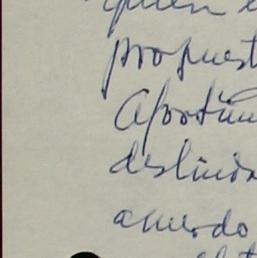 quien e
propuest
aportun
deslinda
acuerdo